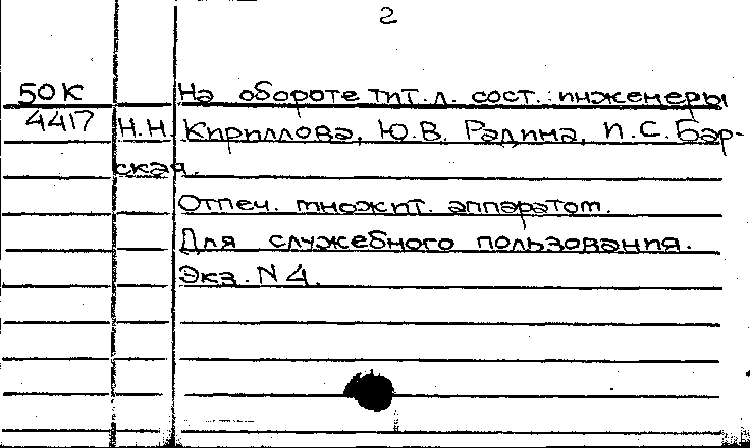 2
50К На обороте тит. л. сост.: инженеры
4417 Н.Н. Кириллова, Ю.В. Радина, И.С. Бар-
ская.
Отпеч. множит. аппаратом.
Для служебного пользования.
Экз. N 4.